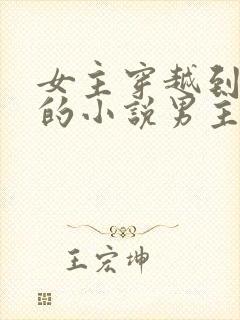 女主穿越到
的小説男主
王宏坤